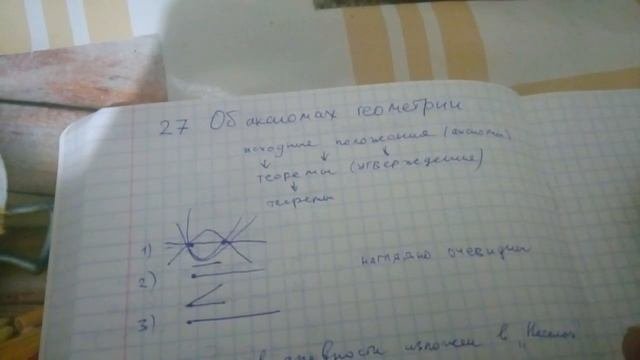 27 Об аксиомах геометрии
исходные положения (аксиомы)
теоремы (утверждение)
теоремы
1)
2)
наглядно очевидны
3)
в древности изложен в „Начала"